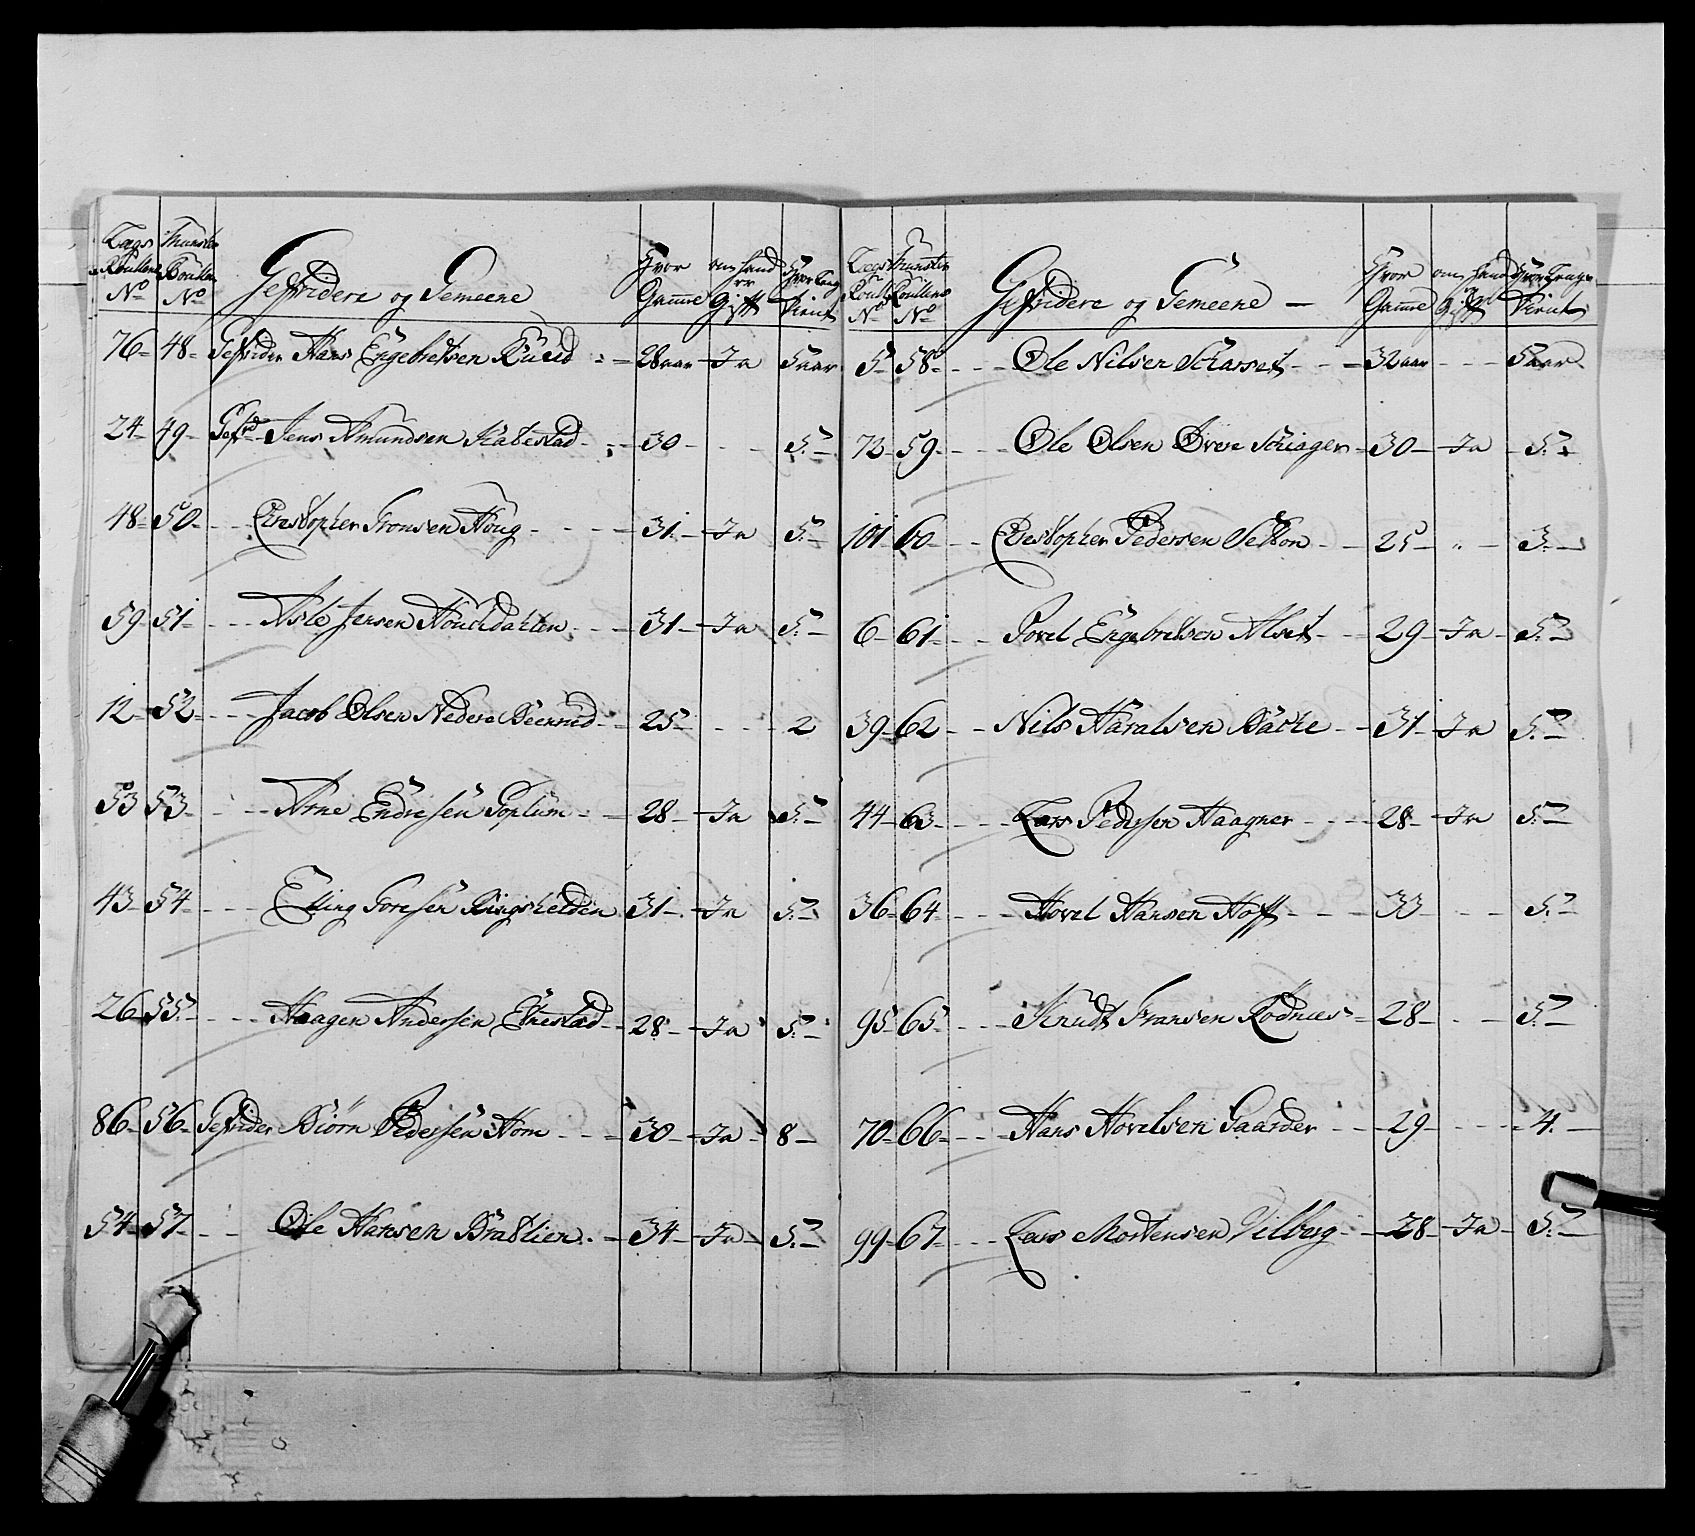 Lægs Roullens No Munster Roullens No Gefrider og Gemeene Hvor Gamme om hand er Gift Hvor Lenge Tient
76 48 Gefrider Hans Engebretsen Ruud 28 aar Ja 5 aar
24 49 Gefrd Jens Amundsen 30 - 5
48 50 Christopher Haug 31 Ja 5
59 51 Asle Jensen 31 Ja 5
12 52 Jacob Olsen Nedere 25 - 2
53 53 Arne Endresen Goplum 28 Ja 5
43 54 Elling Toresen 31 Ja 5
26 55 Haagen Andersen 28 Ja 5
86 56 Gefrider Biörn Pedersen Hom 30 Ja 8
54 57 Ole Hansen Bratlien 34 Ja 5
Lægs Roull No Munster Roullens No Gefridere og Gemeene Hvor Gamme om hand er Gift Hvor Lenge Tient
5 58 Ole Nilsen 32 aar - 5 aar
72 59 Ole Olsen Övre Schiager 30 Ja 5
101 60 Christopher Pedersen 25 " 3
6 61 Povel Engebretsen Alset 29 Ja 5
39 62 Nils Haralsen Bache 31 Ja 5
44 63 Lars Pedersen Haagner 28 Ja 5
36 64 Hovel Hansen Hoff 33 - 5
95 65 Knudt Fransen Rödnæs 28 - 5
70 66 Hans Hovelsen Gaarder 29 - 4
99 67 Lars Mortensen Vilberg 28 Ja 5